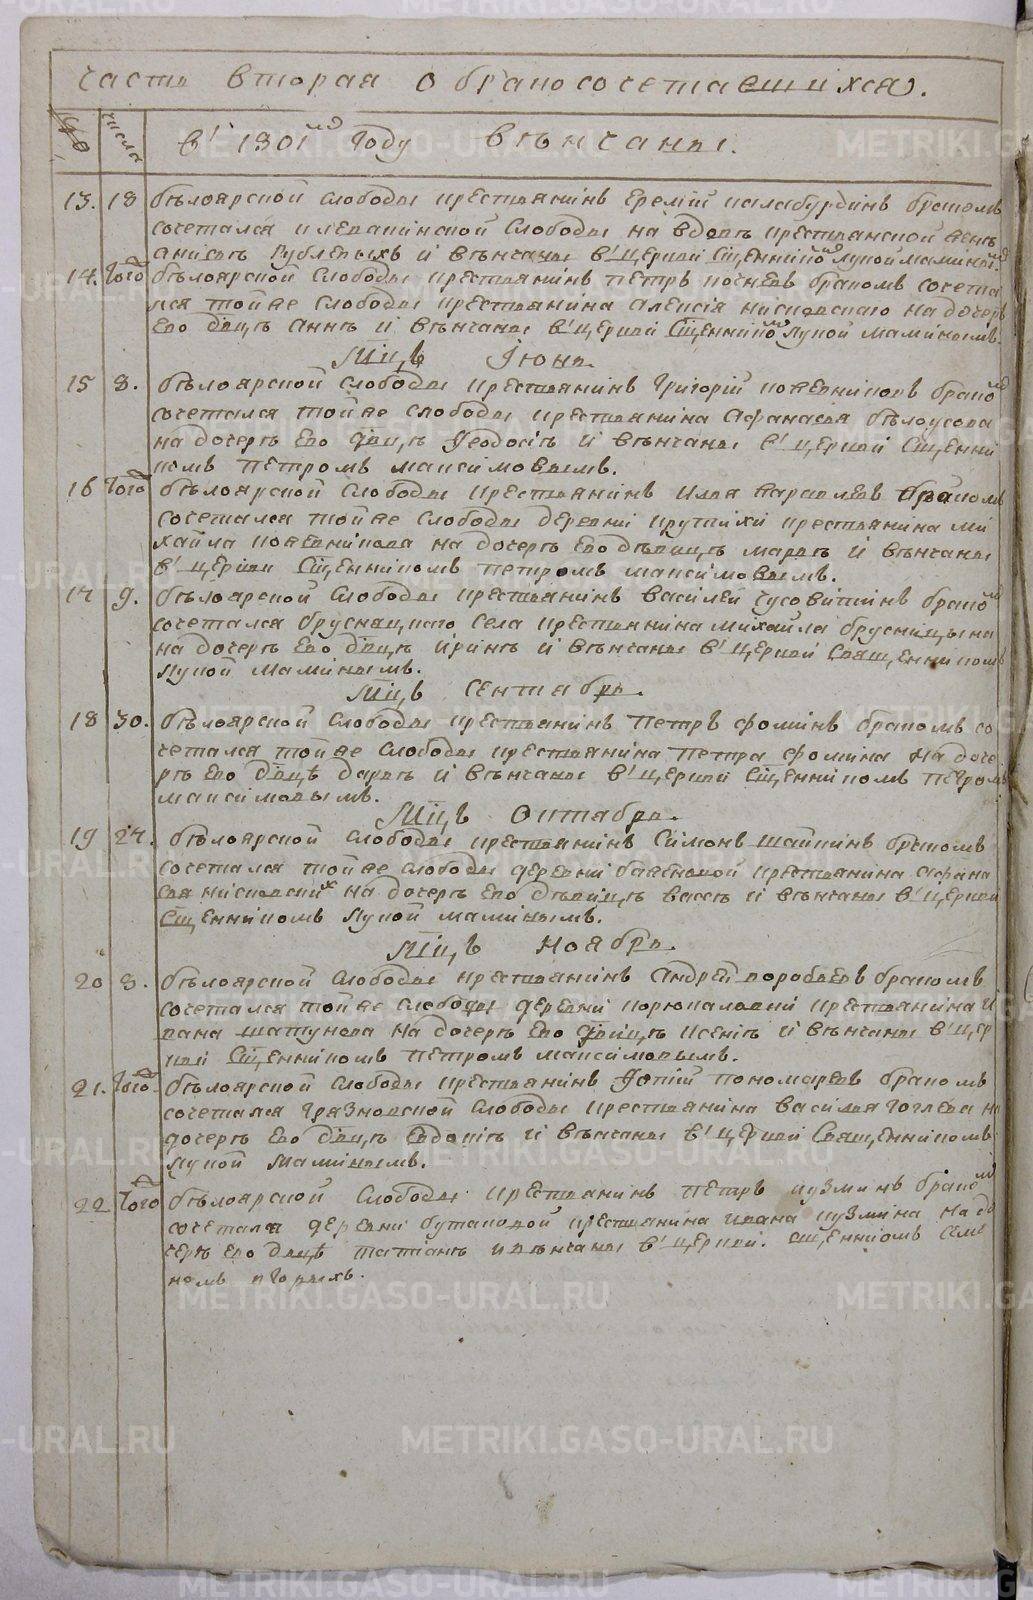 часть вторая о бракосочетавшихся.
числа
в' 1801мъ году венчаны.
13. 18 бѣлоярской слободы крестьянинъ Еремій калабурдинъ бракомъ
сочетался клевакинской слободы на вдовѣ крестьянской женѣ
анисьѣ рублевыхъ и вѣнчаны в' церкви сщенникомъ лукой маминымъ
14. того бѣлоярской слободы крестьянинъ петръ бракомъ сочета
лся той же слободы крестьянина алексія нисковскаго на дочерѣ
его дѣвцѣ аннѣ и вѣнчаны в' церкви сщенникомъ лукой маминымъ.
Мцъ Іюнь.
15 8. бѣлоярской слободы крестьянинъ григорій кожевниковъ бракомъ
сочетался той же слободы крестьянина афанасья бѣлоусова
на дочерѣ его двцѣ феодосіѣ и вѣнчаны в' церкви сщенни
комъ петромъ максимовымъ.
16 того бѣлоярской слободы крестьянинъ илья бракомъ
сочетался той же слободы деревни крутихи крестьянина ми
хайла кожевникова на дочерѣ его дѣвицѣ марѳѣ и вѣнчаны
в' церкви сщенникомъ петромъ максимовымъ.
17 9. бѣлоярской слободы крестьянинъ василей чусовитинъ бракомъ
сочетался бруснящкаго села крестьянина михайла брусницына
на дочерѣ его двцѣ иринѣ и вѣнчаны в' церкви священникомъ
лукой маминымъ.
Мцъ сентябрь.
18 30. бѣлоярской слободы крестьянинъ петръ фоминъ бракомъ со
четался той же слободы крестьянина петра фомина на доче
рѣ его двцѣ дарьѣ и вѣнчаны в' церкви сщенникомъ петромъ
максимовымъ.
Мцъ октябрь.
19 27. бѣлоярской слободы крестьянинъ симонъ шайкинъ бракомъ
сочетался той же слободы деревни баженовой крестьянина афана
сья нисковских на дочерѣ его дѣвицѣ вассѣ и вѣнчаны в' церкви
сщенникомъ лукой маминымъ.
Мцъ ноябрь.
20 8. бѣлоярской слободы крестьянинъ андрей воробьевъ бракомъ
сочетался той же слободы деревни крестьянина и
вана шатунова на дочерѣ его двицѣ ксеніѣ и вѣнчаны в' цер
кви сщенникомъ петромъ максимовымъ.
21. того бѣлоярской слободы крестьянинъ фотій пономаревъ бракомъ
сочетался грязновской слободы крестьянина василья гоглева на
дочерѣ его двцѣ евдокіѣ и вѣнчаны в' церкви священникомъ
лукой маминымъ.
22 того бѣлоярской слободы крестьянинъ петръ кузминъ бракомъ
сочетался деревни бутаковой крестьянина ивана кузмина на до
черѣ его двцѣ татіанѣ и вѣнчаны в' церкви. сщенником
METRIKI.GASO-URAL.RU